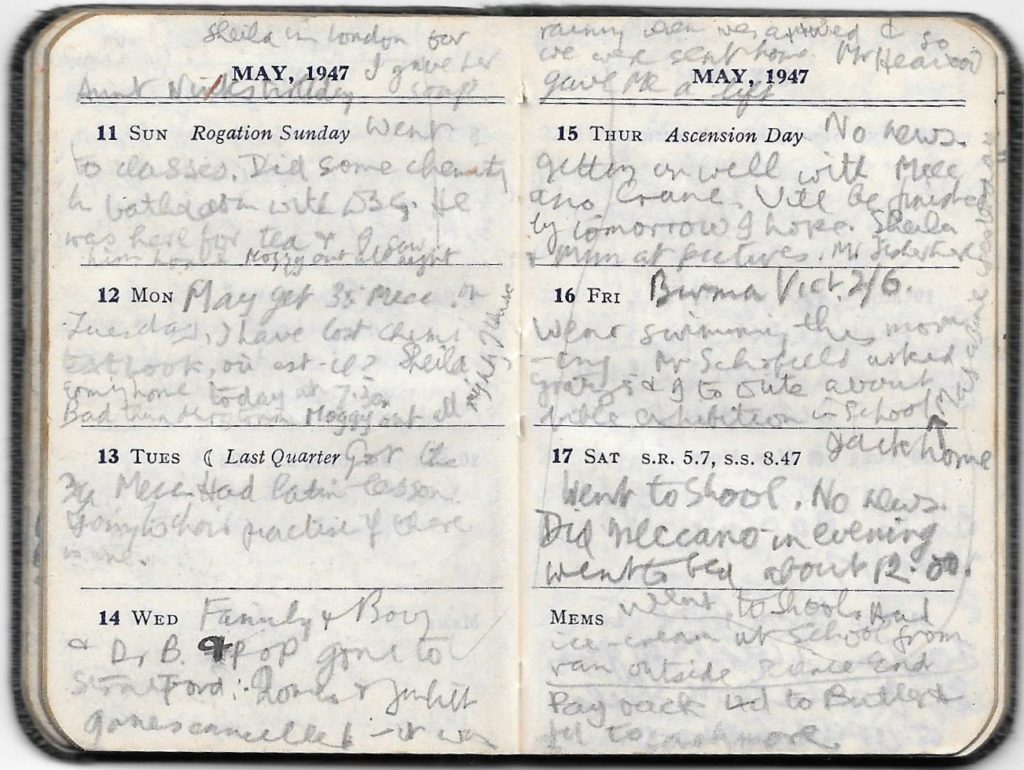 Sheila in London for
I gave her
MAY, 1947
Aunt holiday soap
11 SUN Rogation Sunday Went
to classes. Did some chemistry
in with D.B.G. He
was here for tea & I saw
him home Moggy out all night
12 MON May get 3s Mecc. on
Tuesday, I have lost chem
textbook, où est-il? Sheila
coming home today at 7.30
Bad thunderstorm Moggy out all
night
13 TUES ☾ Last Quarter Got the
3a Mecc. Had latin lesson
Going to choir practise if there
is one.
14 WED Family & Boy
& Dr B. & Pop gone to
Stratford: Romeo & Juliet
games cancelled – it was
rainy when we arrived & so
we were sent home. Mr Heawood
MAY, 1947
gave me a lift
15 THUR Ascension Day No news.
Getting on well with Mecc
ano Crane. Will be finished
by tomorrow I hope. Sheila
& Mum at pictures. Mr
16 FRI Burma Vict. 2/6.
Went swimming this morn
-ing Mr Schofield asked
& I to write about
bible exhibition in School
Jack home
17 SAT S.R. 5.7, S.S. 8.47
Went to School. No news.
Did Meccano in evening
went to bed about 12.00.
MEMS Went to School, Had
ice-cream at School from
van outside Science End
Pay back 4d to Butler &
to Cashmore.